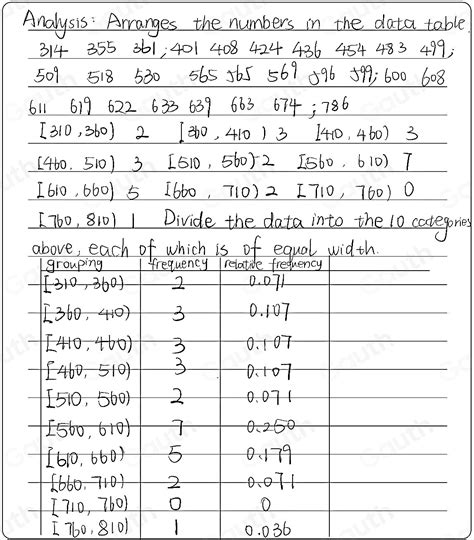 Analysis: Arranges the numbers in the data table.
314 355 361; 401 408 424 436 454 483 499;
509 518 530 565 565 569 596 599; 600 608
611 619 622 633 639 663 674; 786
[310, 360) 2 [360, 410) 3 [410, 460) 3
[460, 510) 3 [510, 560) 2 [560, 610) 7
[610, 660) 5 [660, 710) 2 [710, 760) 0
[760, 810) 1 Divide the data into the 10 categories
above, each of which is of equal width.
grouping frequency relative frequency
[310, 360) 2 0.071
[360, 410) 3 0.107
[410, 460) 3 0.107
[460, 510) 3 0.107
[510, 560) 2 0.071
[560, 610) 7 0.250
[610, 660) 5 0.179
[660, 710) 2 0.071
[710, 760) 0 0
[760, 810) 1 0.036